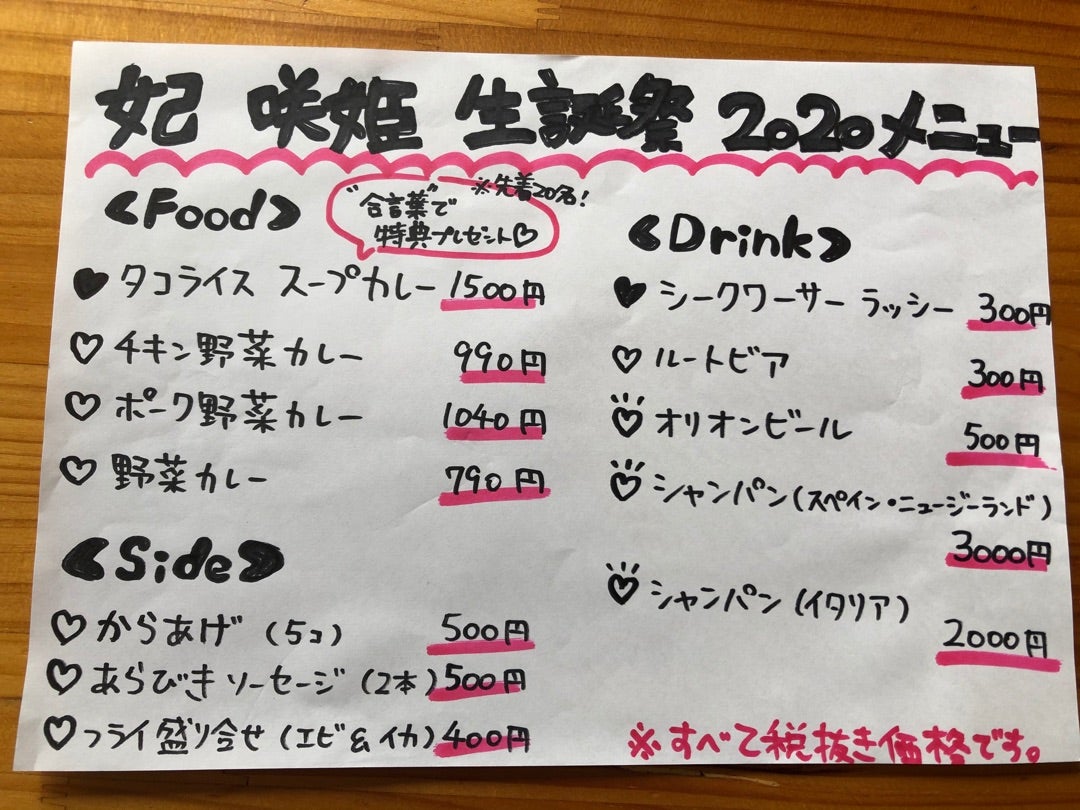 妃 咲姫 生誕祭 2020メニュー
《Food》
※先着20名!
"合言葉"で
特典プレゼント♡
♥タコライス スープカレー 1500円
♡チキン野菜カレー 990円
♡ポーク野菜カレー 1040円
♡野菜カレー 790円
《Side》
♡からあげ(5コ) 500円
♡あらびきソーセージ(2本) 500円
♡フライ盛り合せ(エビ&イカ) 400円
《Drink》
♥シークワーサー ラッシー 300円
♡ルートビア 300円
♡オリオンビール 500円
♡シャンパン(スペイン・ニュージーランド)
3000円
♡シャンパン(イタリア)
2000円
※すべて税抜き価格です。